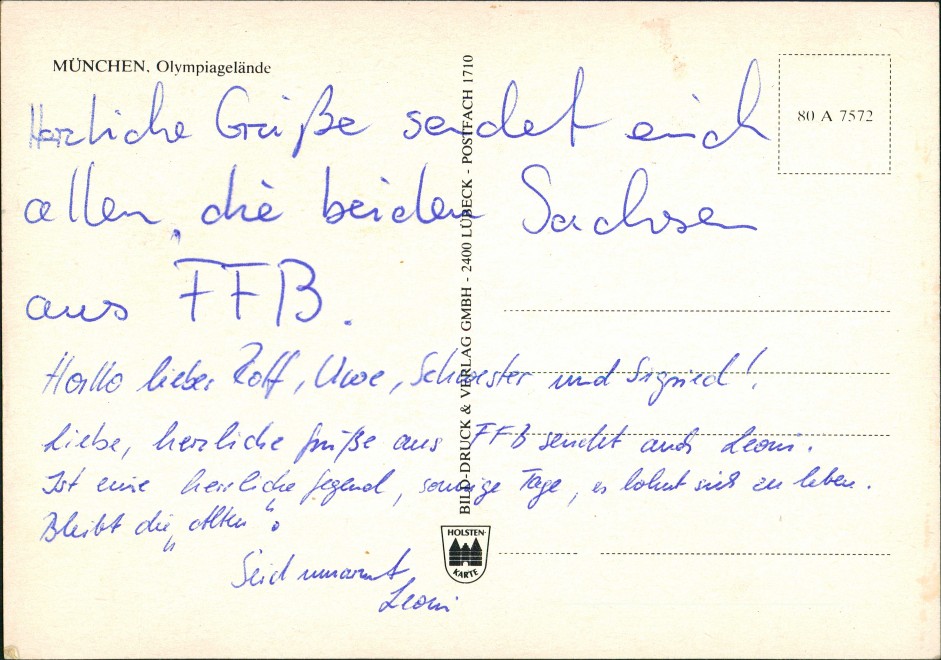 MÜNCHEN. Olympiagelände
80 A 7572
Herzliche Grüße sendet euch
allen, die beiden Sachsen
aus FFB.
Hallo lieber Rolf, Uwe, Schwester und Sigried!
Liebe, herzliche Grüße aus FFB sendet auch Leoni.
Ist eine herrliche Gegend, sonnige Tage, es lohnt sich zu leben.
Bleibt die „Alten“.
Seid umarmt
Leoni
BILD-DRUCK & VERLAG GMBH - 2400 LÜBECK - POSTFACH 1710
HOLSTEN-
KARTE